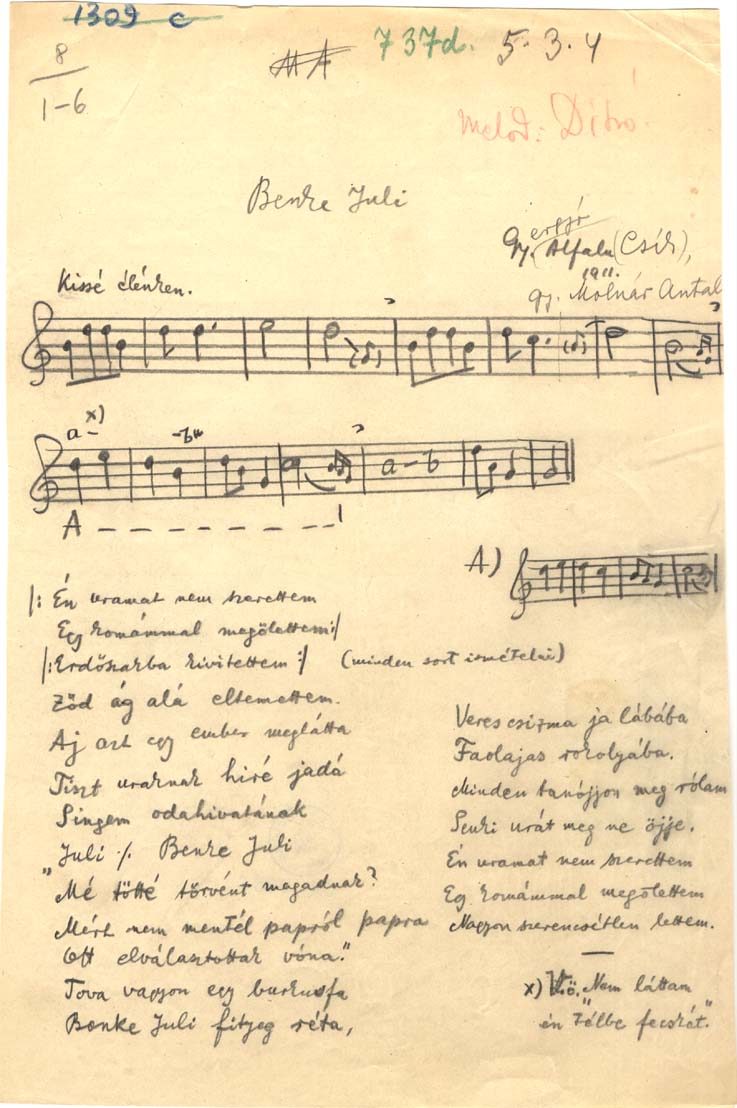 1309 c
8
1-6
MA
737d.
5. 3. 4
Melod: Ditró.
Benke Juli
Gy. ergyó
Alfalu (Csík),
1911.
gy. Molnár Antal
Kissé élénken.
a -
x)
- b
A - - - - - - - -
a - b
A)
|: Én uramat nem szerettem
Egy komámmal megölettem :|
|: Erdőszakba kivitettem :| (minden sort ismételni)
Ződ ág alá eltemettem.
Aj azt egy ember meglátta
Tiszt uraknak hiré jadá
Singem odahivatának
"Juli ./. Benke Juli
Mé tötté törvént magadnak?
Mért nem mentél papról papra
Ott elválasztottak vóna."
Tova vagyon egy burkusfa
Benke Juli fityeg réta,
Veres csizma ja lábába
Faolajas rokolyába.
Minden tanójjon meg rólam
Senki urát meg ne öjje.
Én uramat nem szerettem
Egy komámmal megölettem
Nagyon szerencsétlen lettem.
x) V.ö. "Nem láttam
én télbe fecskét."